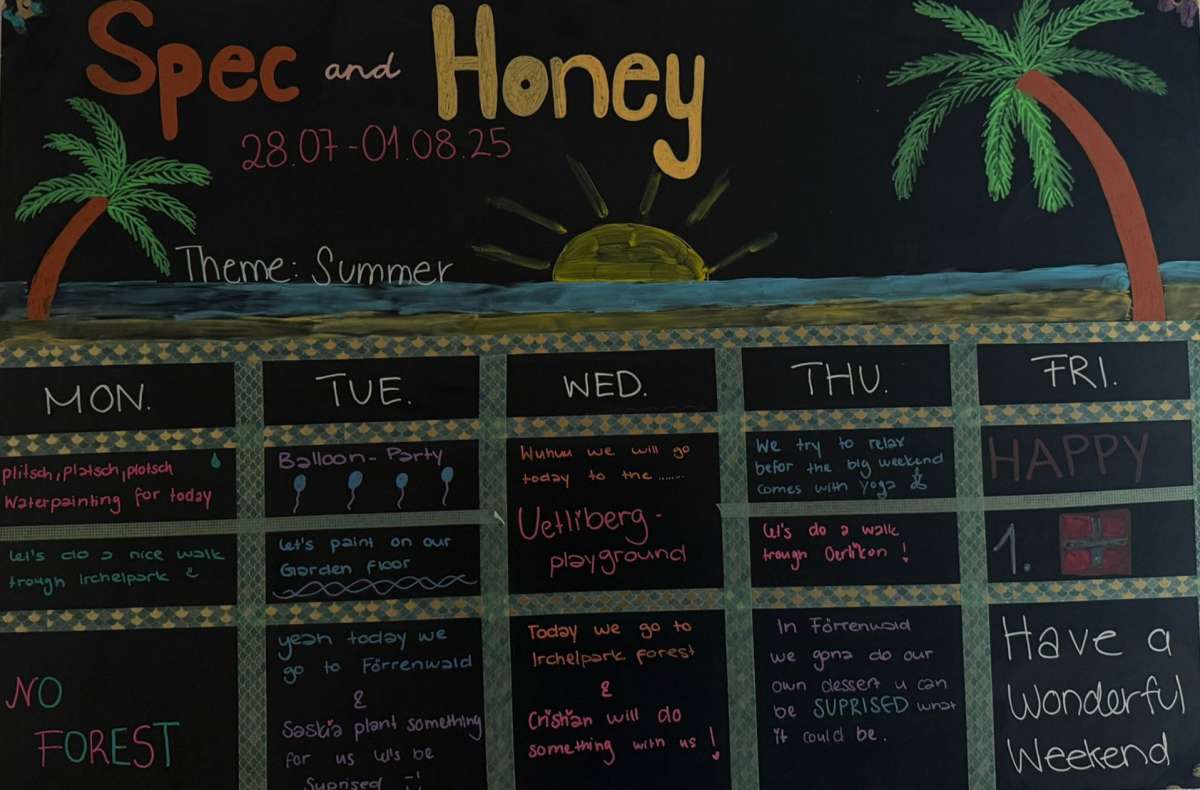 Spec and Honey
28.07-01.08.25
Theme: Summer
MON.
TUE.
WED.
THU.
FRI.
plitsch, platsch, plotsch
Waterpainting for today
Balloon-Party
Wuhuu we will go
today to the.......
Uetliberg-
playground
We try to relax
befor the big weekend
comes with yoga
HAPPY
Let's do a nice walk
trough Irchelpark
Let's paint on our
Garden floor
Let's do a walk
trough Oerlikon !
1.
NO
FOREST
yeah today we
go to Förrenwald
&
Saskia plant something
for us let's be
Suprised
Today we go to
Irchelpark forest
&
Cristian will do
something with us !
In Förrenwald
we gona do our
own dessert u can
be SUPRISED what
it could be.
Have a
Wonderful
Weekend